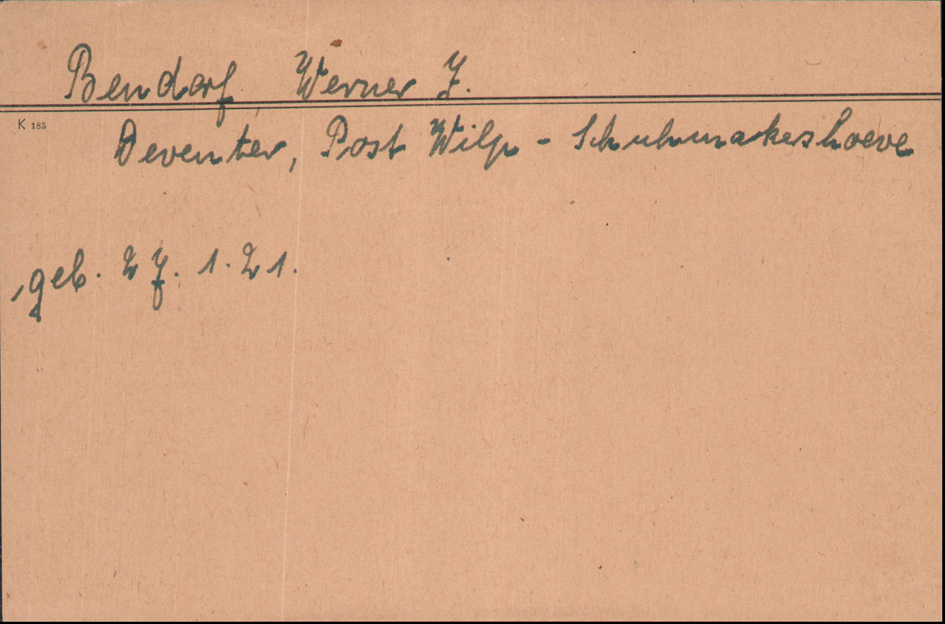 Bendorf Werner J.
K 185
Deventer, Post Wilp - Schuhmakershoeve
geb. 27. 1. 21.